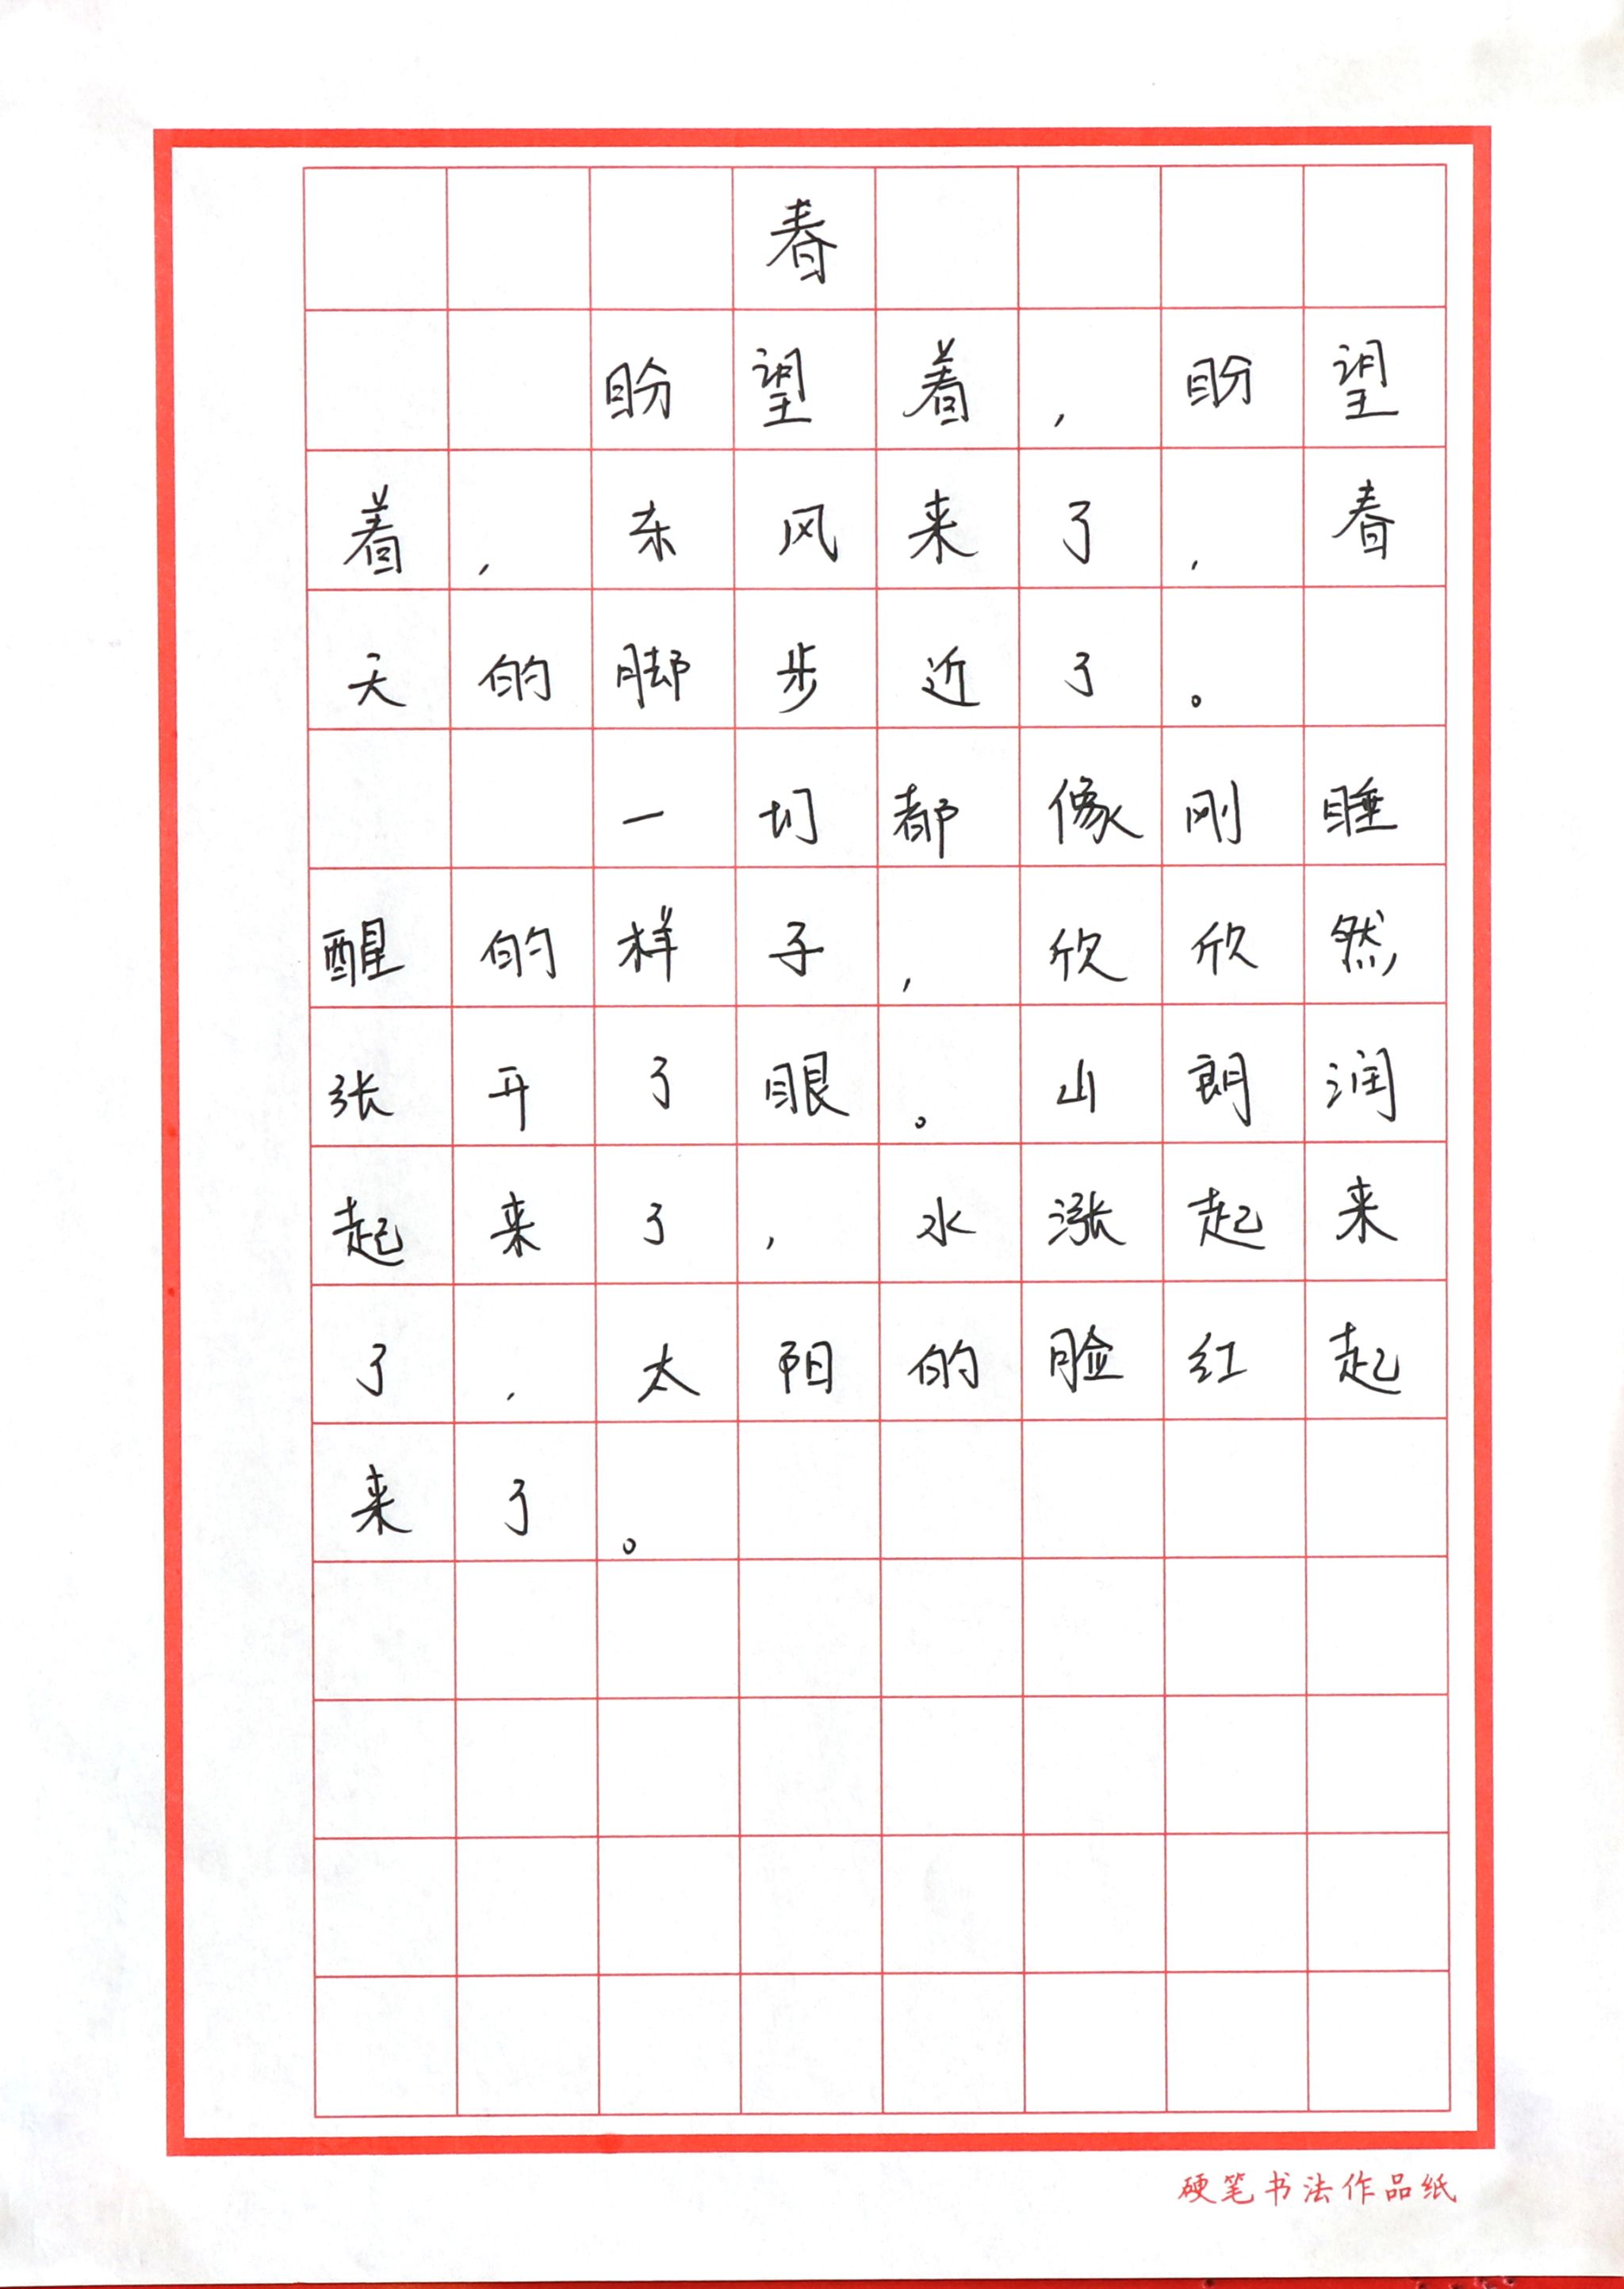 春
盼望着，盼望
着，东风来了，春
天的脚步近了。
一切都像刚睡
醒的样子，欣欣然
张开了眼。山朗润
起来了，水涨起来
了，太阳的脸红起
来了。
硬笔书法作品纸